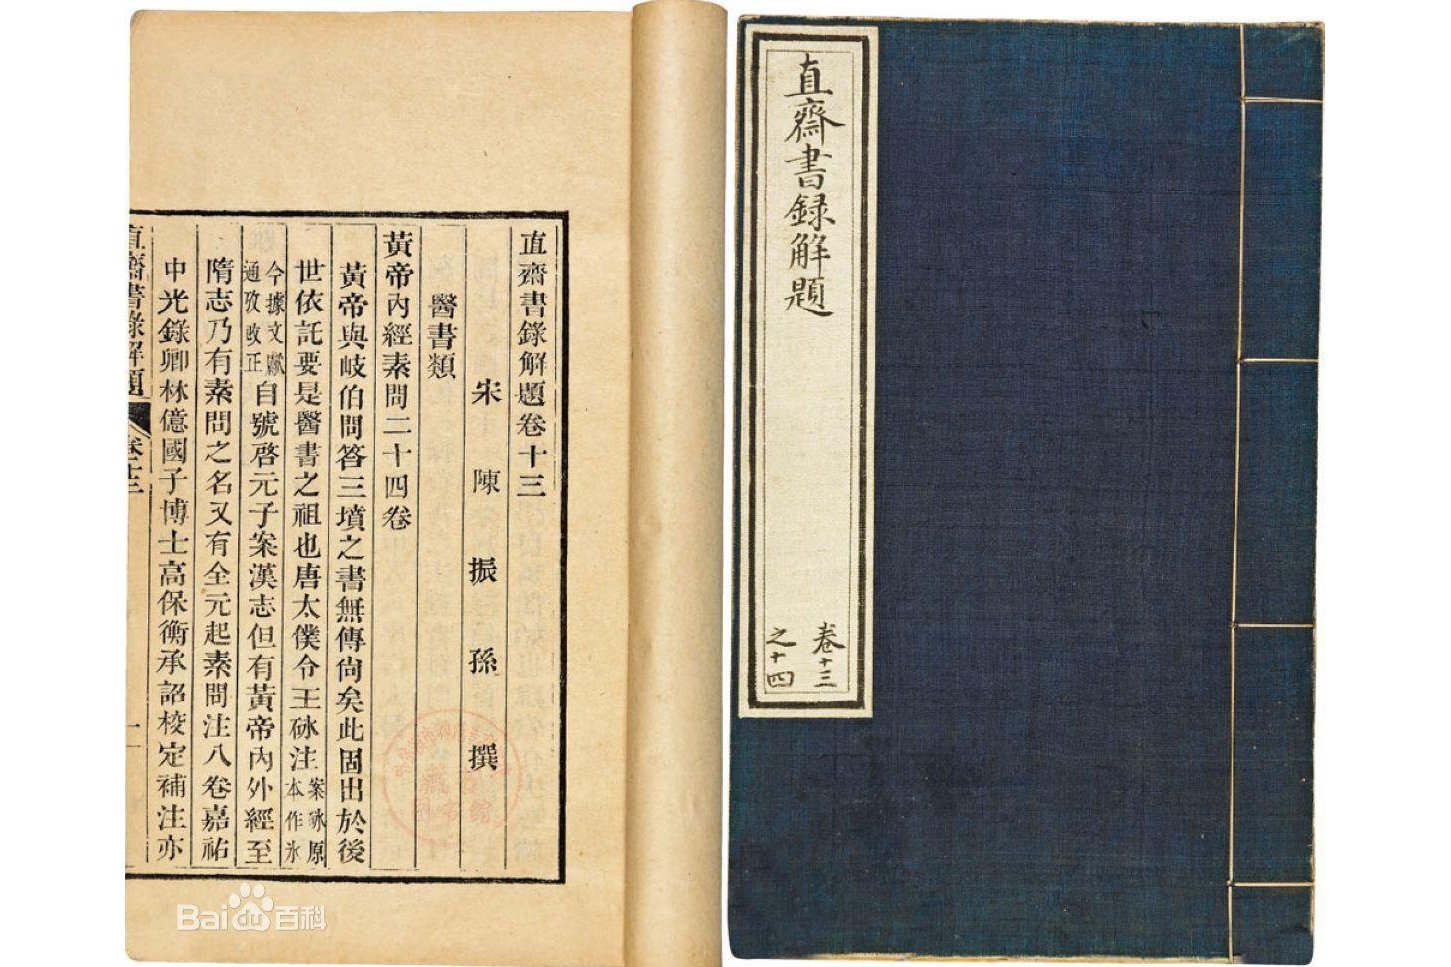 直齋書錄解題
卷十三
之十四
直齋書錄解題卷十三
宋 陳 振 孫 撰
醫書類
黃帝內經素問二十四卷
黃帝與岐伯問答三墳之書無傳尙矣此固出於後
世依託要是醫書之祖也唐太僕令王砅注案砅原本作氷
今據文獻通攷改正自號啓元子案漢志但有黃帝內外經至
隋志乃有素問之名又有全元起素問注八卷嘉祐
中光錄卿林億國子博士高保衡承詔校定補注亦
直齋書錄解題
卷十三
一
Bai du 百科